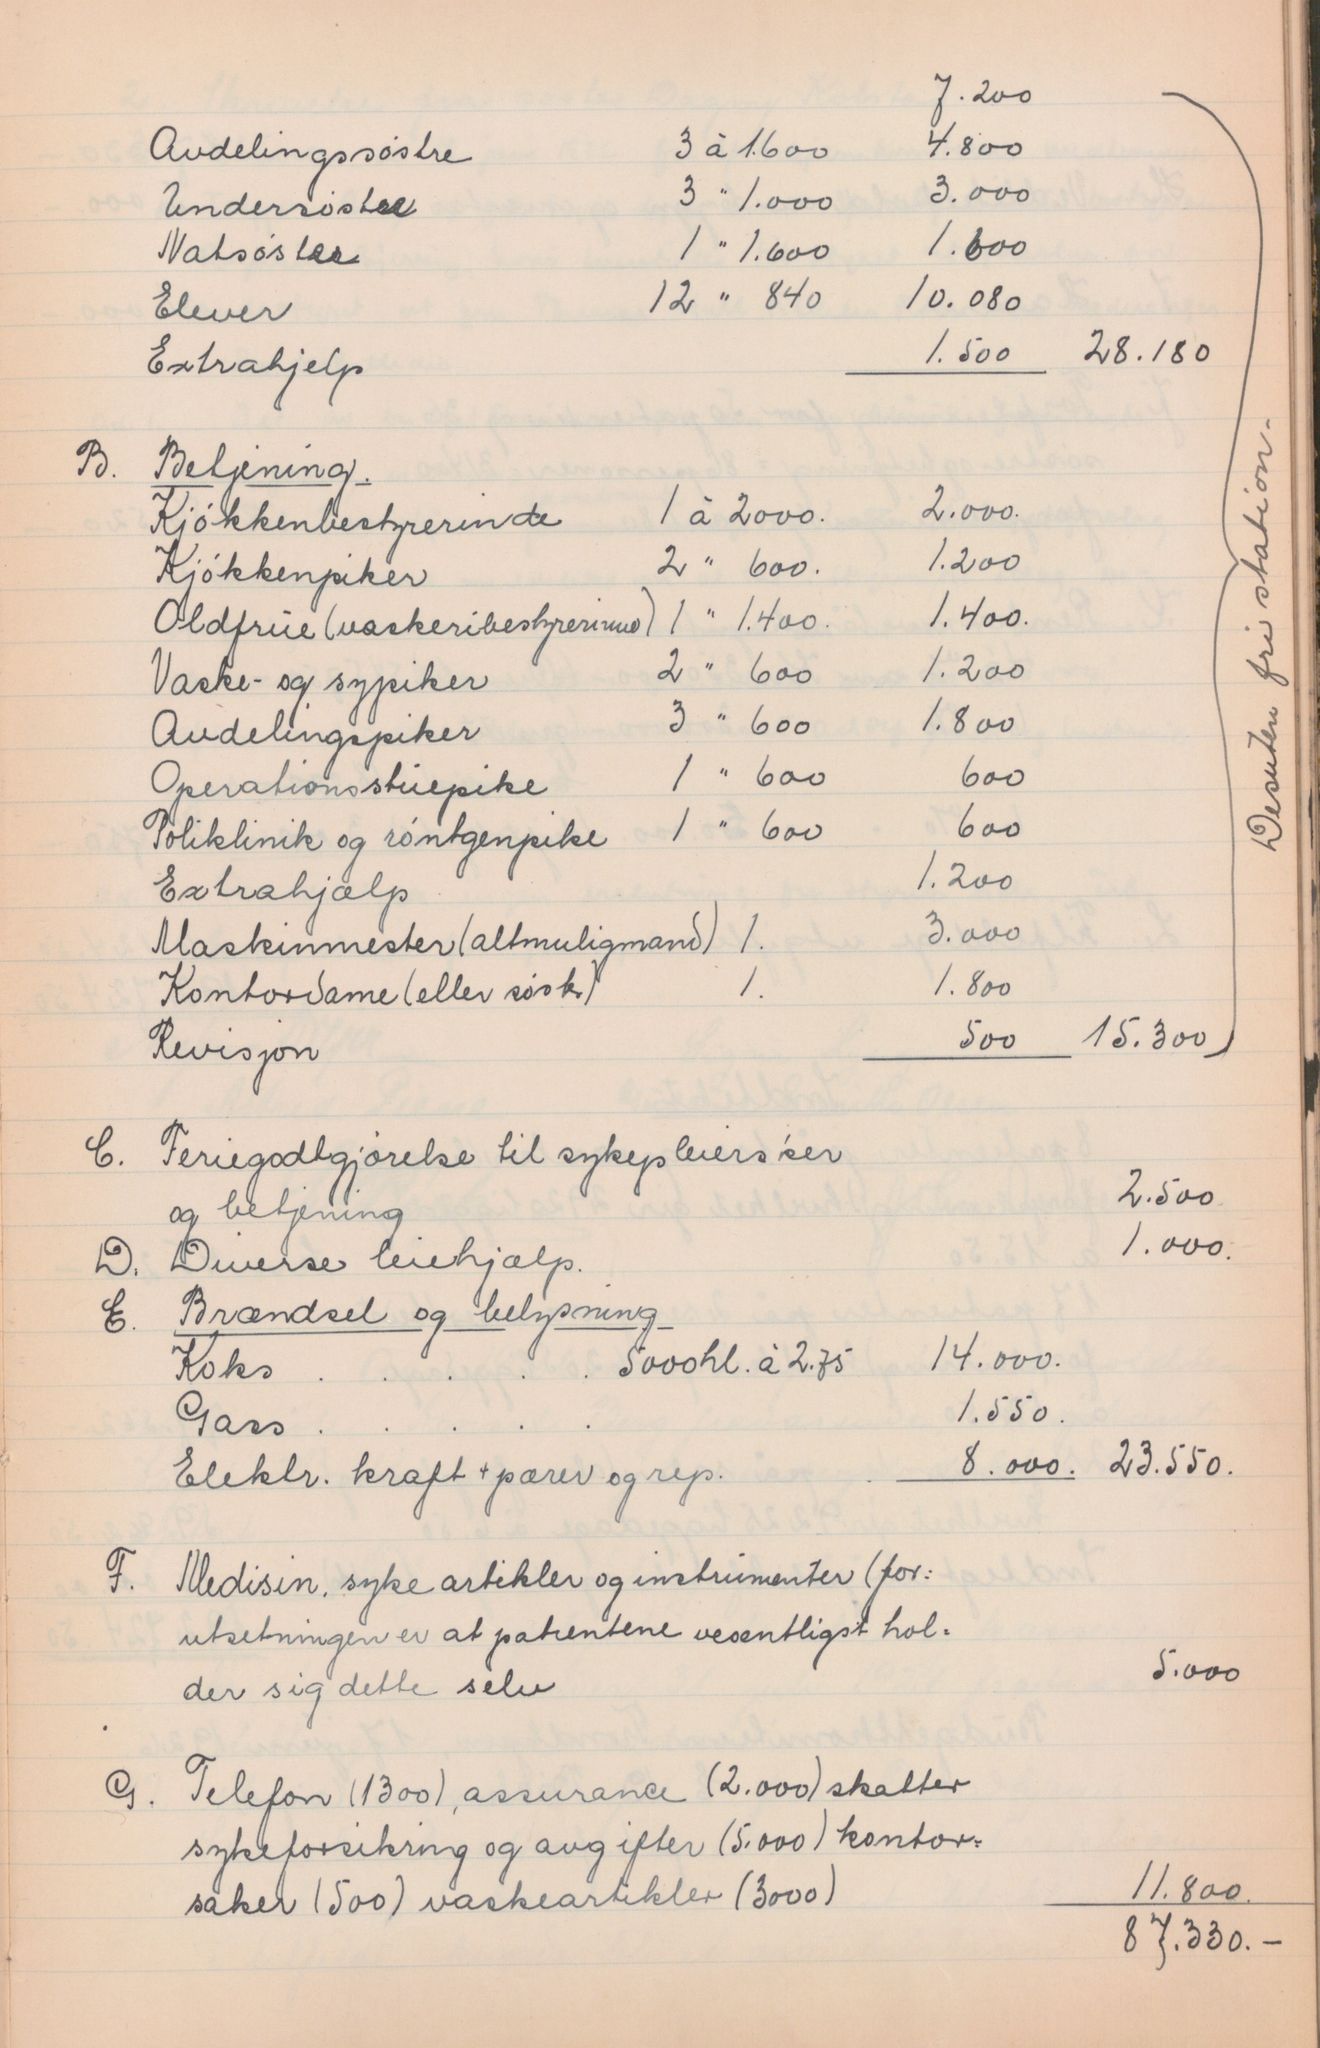 7.200
Avdelingssøstre 3 à 1.600 4.800
Undersøstre 3 " 1.000 3.000
Natsøster 1 " 1.600 1.600
Elever 12 " 840 10.080
Extrahjelp 1.500 28.180
B. Betjening.
Kjøkkenbestyrerinde 1 à 2000. 2.000.
Kjøkkenpiker 2 " 600. 1.200
Oldfrue (vaskeribestyrerinne) 1 " 1.400. 1.400.
Vaske- og sypiker 2 " 600 1.200
Avdelingspiker 3 " 600 1.800
Operationsstuepike 1 " 600 600
Poliklinik og røntgenpike 1 " 600 600
Extrahjælp 1.200
Maskinmester (altmuligmand) 1. 3.000
Kontordame (eller søst.) 1. 1.800
Revisjon 500 15.300
Desuten fri station.
C. Feriegodtgjørelse til sykepleiersker
og betjening 2.500
D. Diverse leiehjælp. 1.000.
E. Brændsel og belysning
Koks . . . . . 5000hl. à 2.75 14.000.
Gass . . . . . 1.550.
Elektr. kraft + pærer og rep. 8.000. 23.550.
F. Medisin, syke artikler og instrumenter (for=
utsetningen er at patientene vesentligst hol=
der sig dette selv 5.000
G. Telefon (1300), assurance (2.000) skatter
sykeforsikring og avgifter (5.000) kontor=
saker (500) vaskeartikler (3000) 11.800.
87.330.-